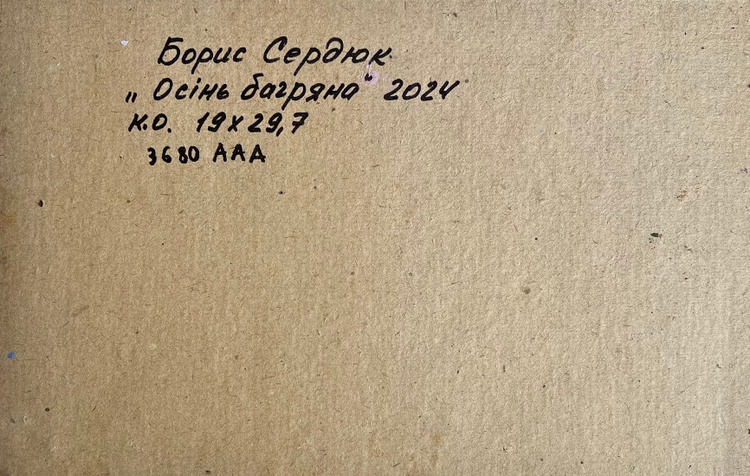 Борис Сердюк
„Осінь багряна" 2024
к.о. 19х29,7
3680 ААА